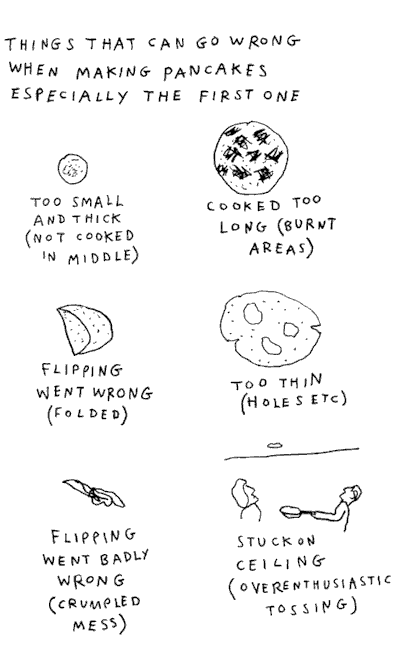 THINGS THAT CAN GO WRONG
WHEN MAKING PANCAKES
ESPECIALLY THE FIRST ONE
TOO SMALL
AND THICK
(NOT COOKED
IN MIDDLE)
COOKED TOO
LONG (BURNT
AREAS)
FLIPPING
WENT WRONG
(FOLDED)
TOO THIN
(HOLES ETC)
FLIPPING
WENT BADLY
WRONG
(CRUMPLED
MESS)
STUCK ON
CEILING
(OVERENTHUSIASTIC
TOSSING)